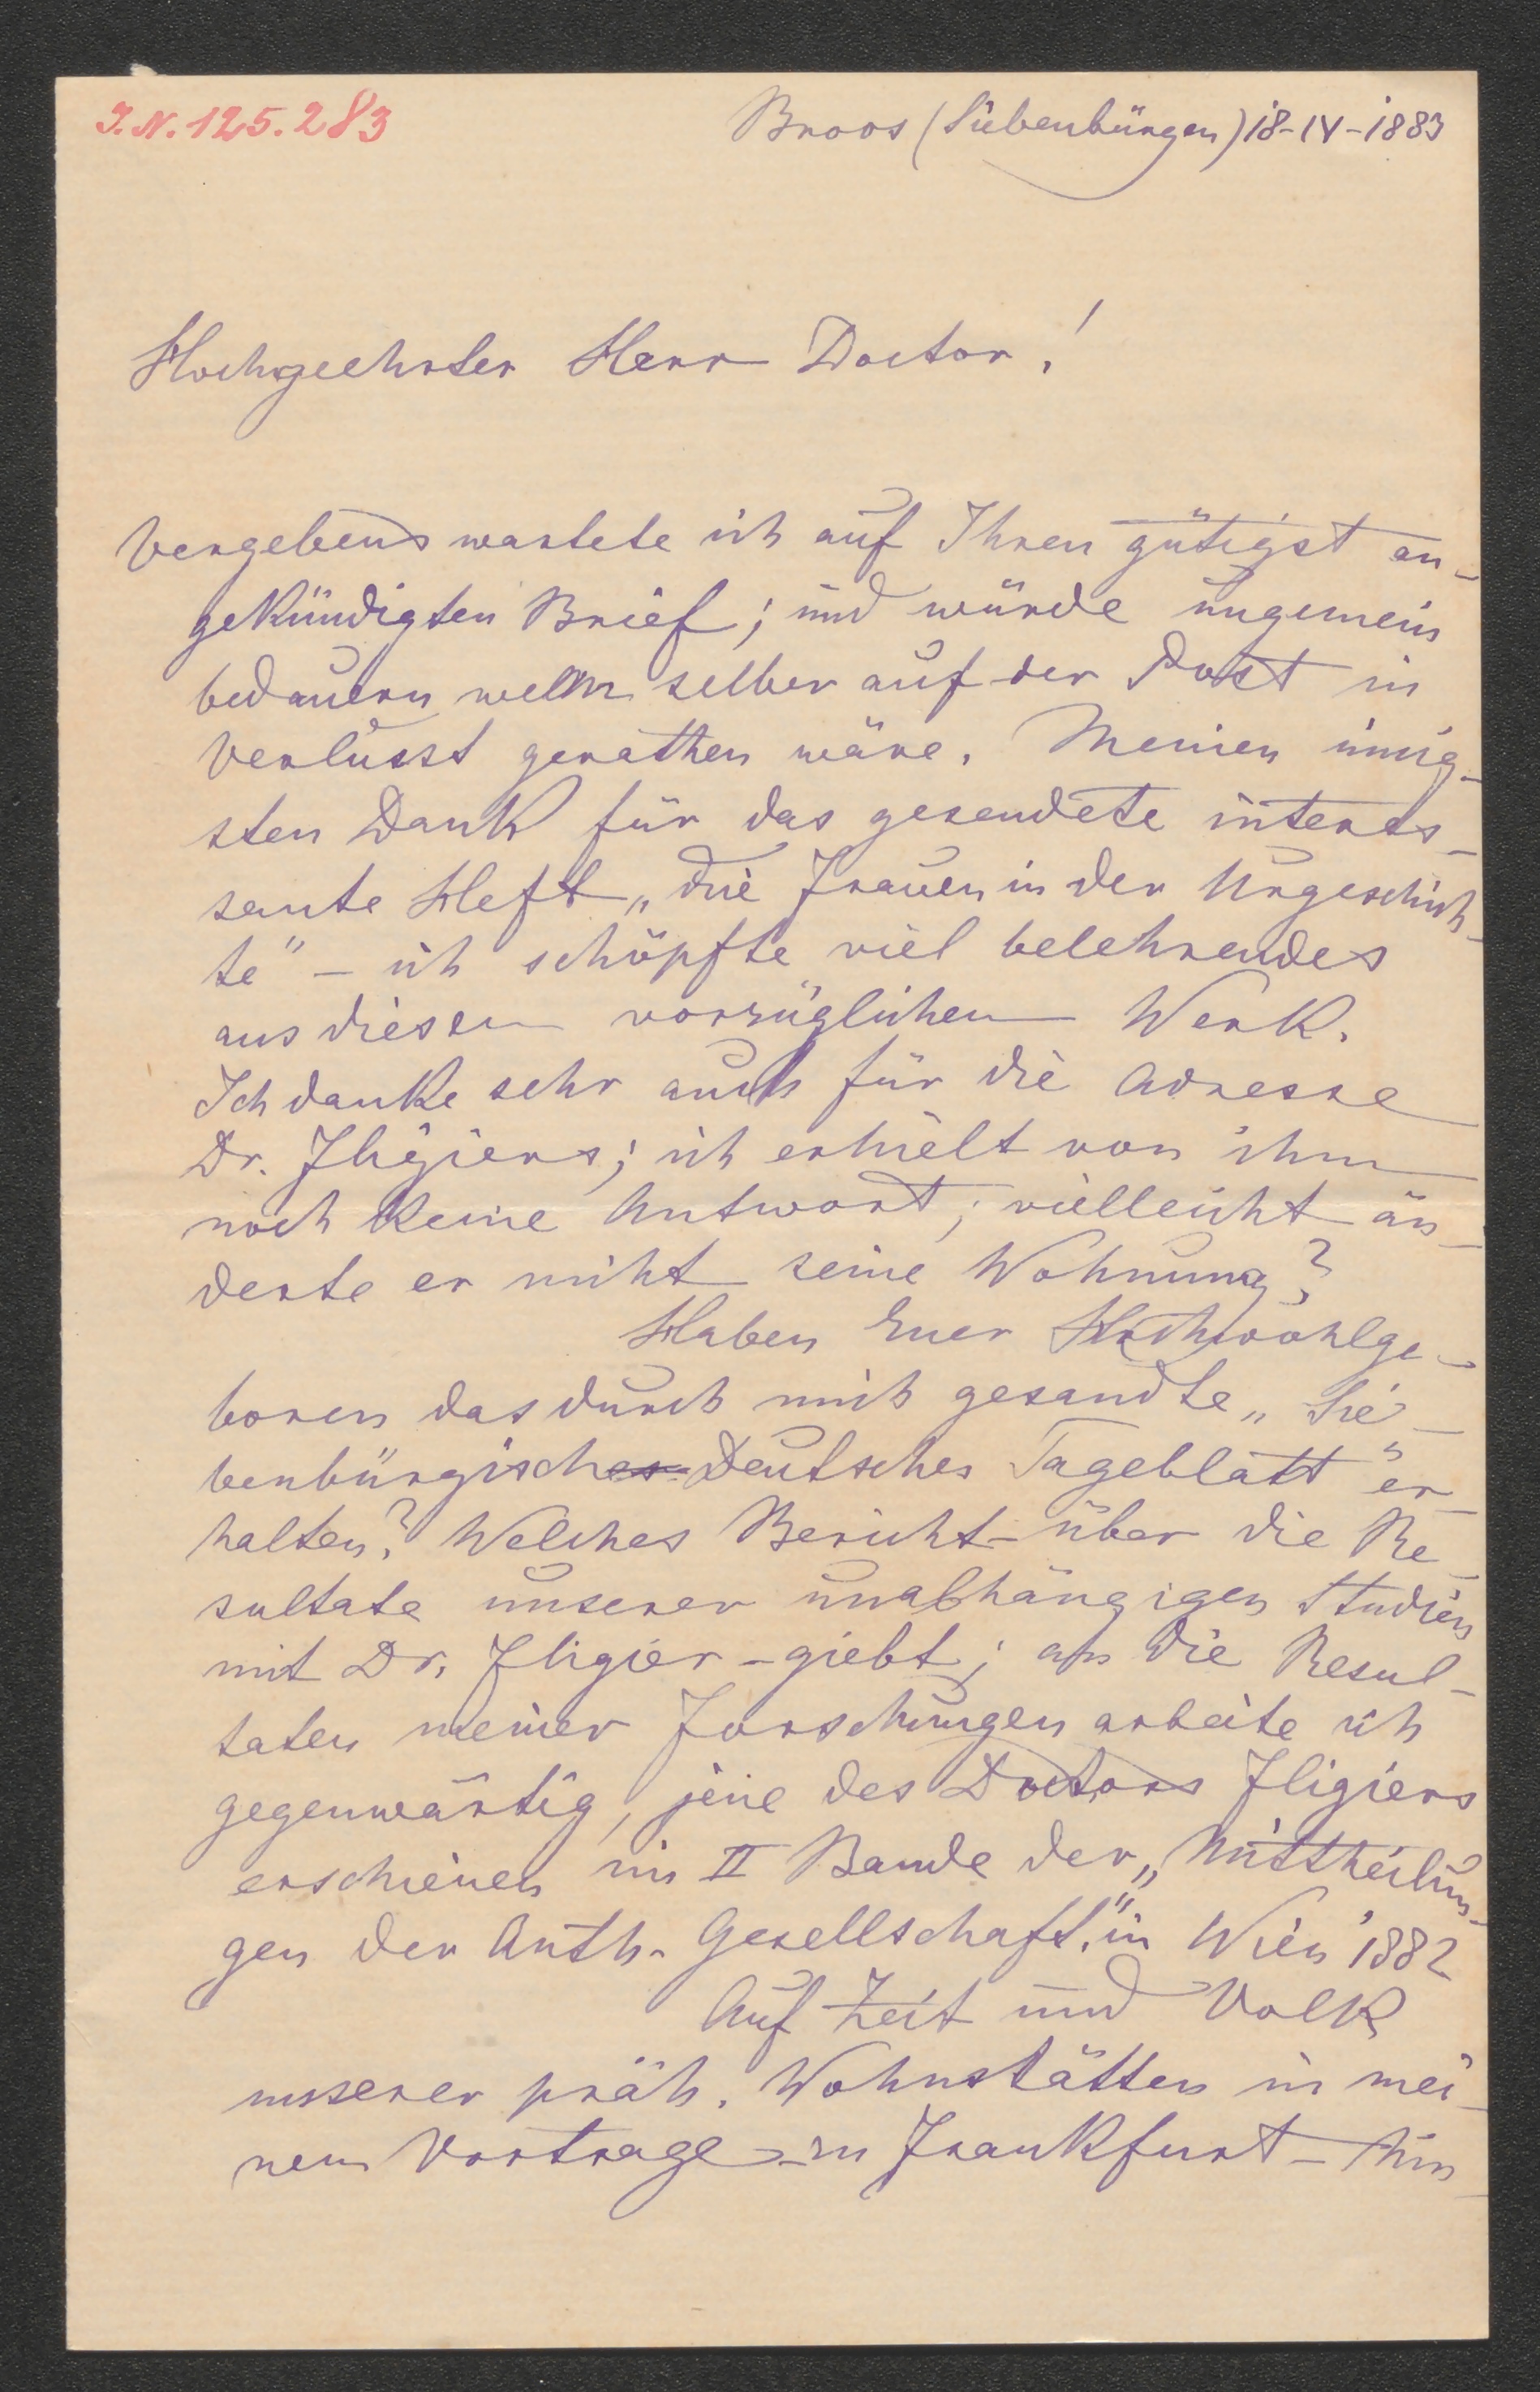 J.N. 125.283
Broos (Siebenbürgen) 18-IV-1883
Hochgeehrter Herr Doctor!
Vergebens wartete ich auf Ihren gütigst an-
gekündigten Brief; und würde ungemein
bedauern wenn selber auf der Post in
Verlusst gerathen wäre. Meinen innig-
sten Dank für das gesendete interes-
sante Heft „die Frauen in der Urgeschich-
te" – ich schöpfte viel belehrendes
aus diesen vorzüglichen Werk.
Ich danke sehr auch für die Adresse
Dr. Fligiers; ich erhielt von ihm
noch keine Antwort, vielleicht än-
derte er nicht seine Wohnung?
Haben Euer Hochwohlge-
boren das durch mich gesandte „Sie-
benbürgisches Deutsches Tageblatt" er-
halten? Welches Bericht über die Re-
sultate unserer unabhängigen Studien
mit Dr. Fligier – giebt; an die Resul-
taten meiner Forschungen arbeite ich
gegenwärtig, jene des Doctors Fligiers
erschienen im II Bande der „Mittheilun-
gen der Anth. Gesellschaft." in Wien 1882
Auf Zeit und Volk
unserer präh. Wohnstätten in mei-
nem Vortrage – in Frankfurt – hin-